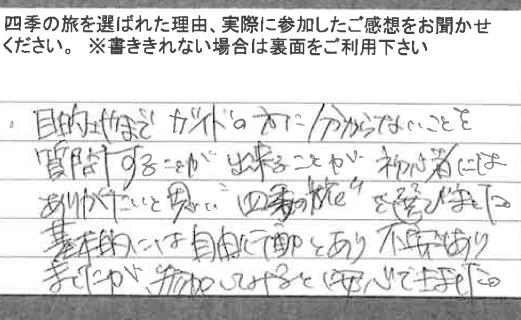 四季の旅を選ばれた理由、実際に参加したご感想をお聞かせ
ください。 ※書ききれない場合は裏面をご利用下さい
目的地まで ガイドの方に分からないことを
質問することが出来ることが 初心者には
ありがたいと思い "四季の旅" を選びました。
基本的には自由行動とあり 不安もあり
ましたが、参加してみると安心できました。